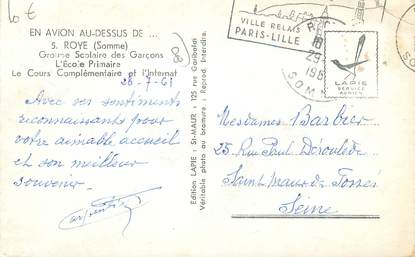 10 €
EN AVION AU-DESSUS DE ...
5. ROYE (Somme)
Groupe Scolaire des Garçons
L'École Primaire
Le Cours Complémentaire et l'Internat
28-7-61
Avec ses sentiments
reconnaissants pour
votre aimable accueil
et son meilleur
souvenir.
Édition LAPIE - St-MAUR - 125 rue Garibaldi
Véritable photo au bromure - Reprod. Interdite.
VILLE RELAIS
PARIS-LILLE
18
29-
196
SOMM
LAPIE
SERVICE
AERIEN
Mesdames Barbier
25 Rue Paul Déroulède
Saint Maur des Fossés
Seine